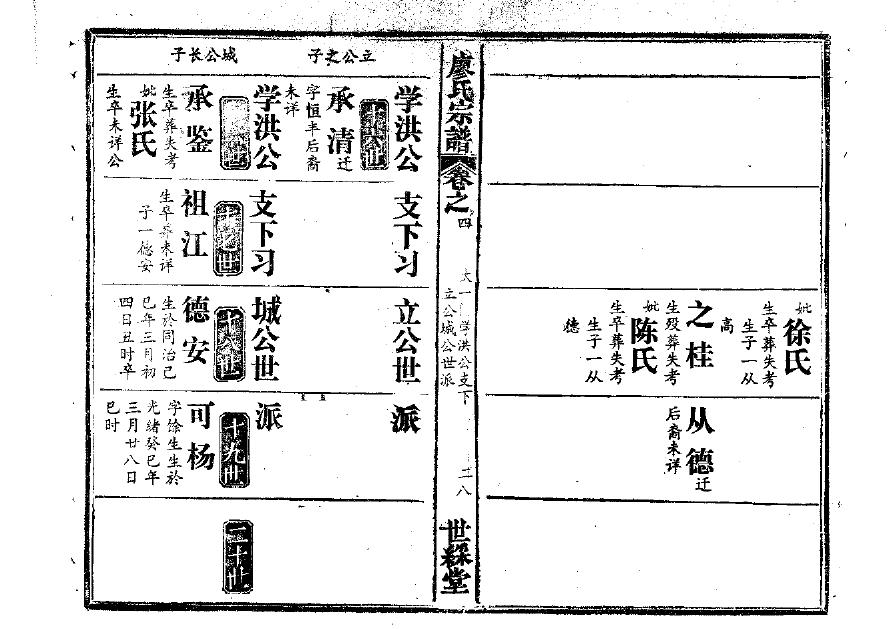 妣
徐氏
生卒葬失考
生子一从
高
之桂
生殁葬失考
妣
陈氏
生卒葬失考
生子一从
德
从德迁
后裔未详
廖氏宗譜
卷之四
学洪公支下
立公城公世派
二八
世綵堂
学洪公支下习立公世派
立公之子
承清迁
字恒丰后裔
未详
学洪公支下习城公世派
城公长子
承鉴
生卒葬失考
妣
张氏
生卒未详公
祖江
生卒葬未详
子一德安
十八世
德安
生於同治己
巳年三月初
四日丑时卒
十九世
可杨
字馀生生於
光绪癸巳年
三月廿八日
巳时
二十世